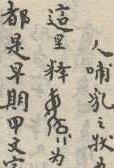 人哺乳之狀为
這里释为
都是早期甲文字